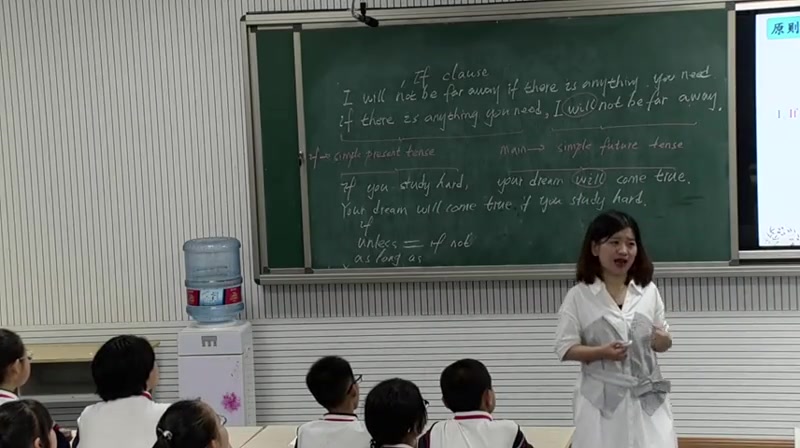 If clause
I will not be far away if there is anything you need
if there is anything you need, I will not be far away.
if → simple present tense main → simple future tense
if you study hard, your dream will come true.
Your dream will come true if you study hard.
if
unless = if not
as long as
原则